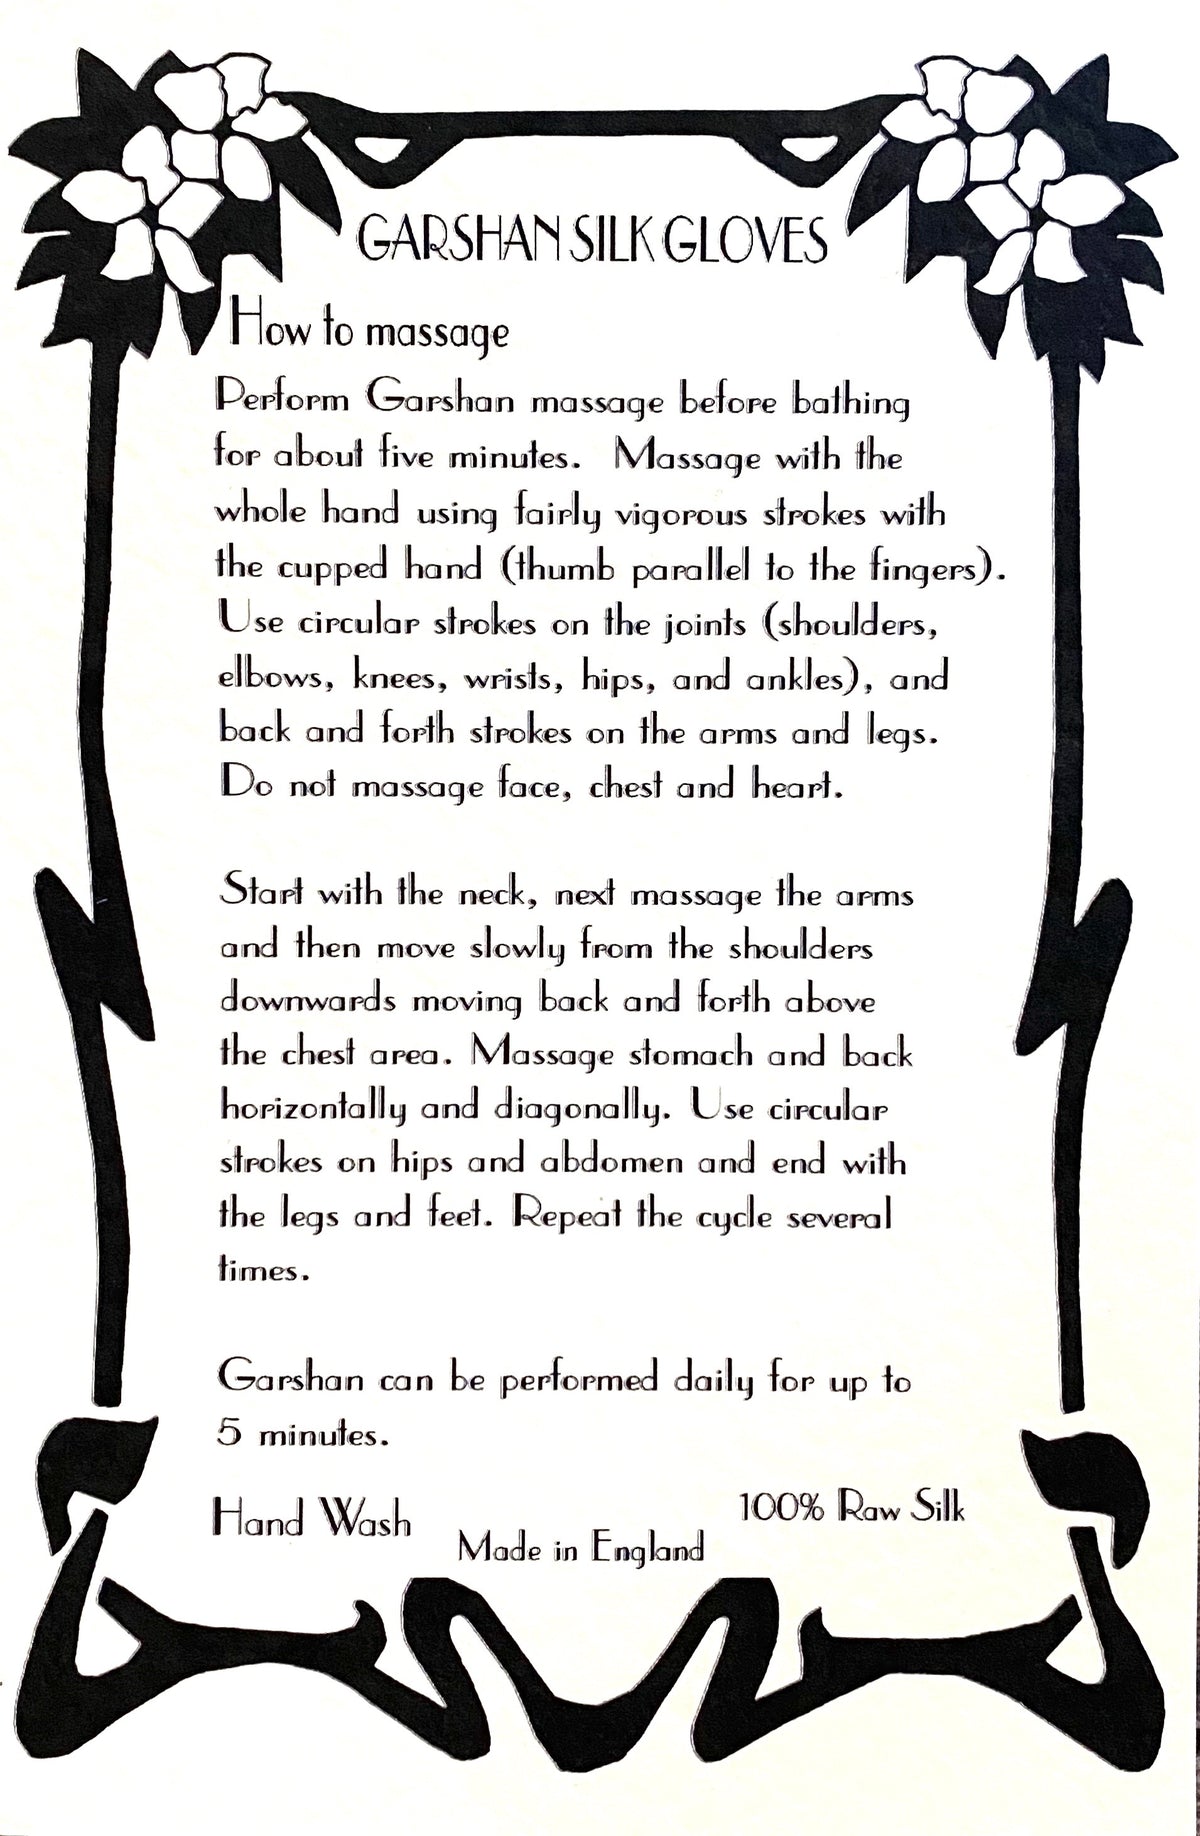 GARSHAN SILK GLOVES
How to massage
Perform Garshan massage before bathing
for about five minutes. Massage with the
whole hand using fairly vigorous strokes with
the cupped hand (thumb parallel to the fingers).
Use circular strokes on the joints (shoulders,
elbows, knees, wrists, hips, and ankles), and
back and forth strokes on the arms and legs.
Do not massage face, chest and heart.
Start with the neck, next massage the arms
and then move slowly from the shoulders
downwards moving back and forth above
the chest area. Massage stomach and back
horizontally and diagonally. Use circular
strokes on hips and abdomen and end with
the legs and feet. Repeat the cycle several
times.
Garshan can be performed daily for up to
5 minutes.
Hand Wash
Made in England
100% Raw Silk